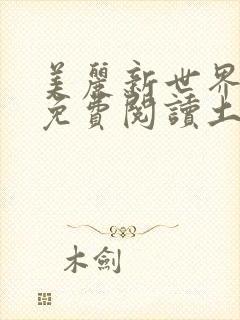 美麗新世界
免費閱讀土
木劍